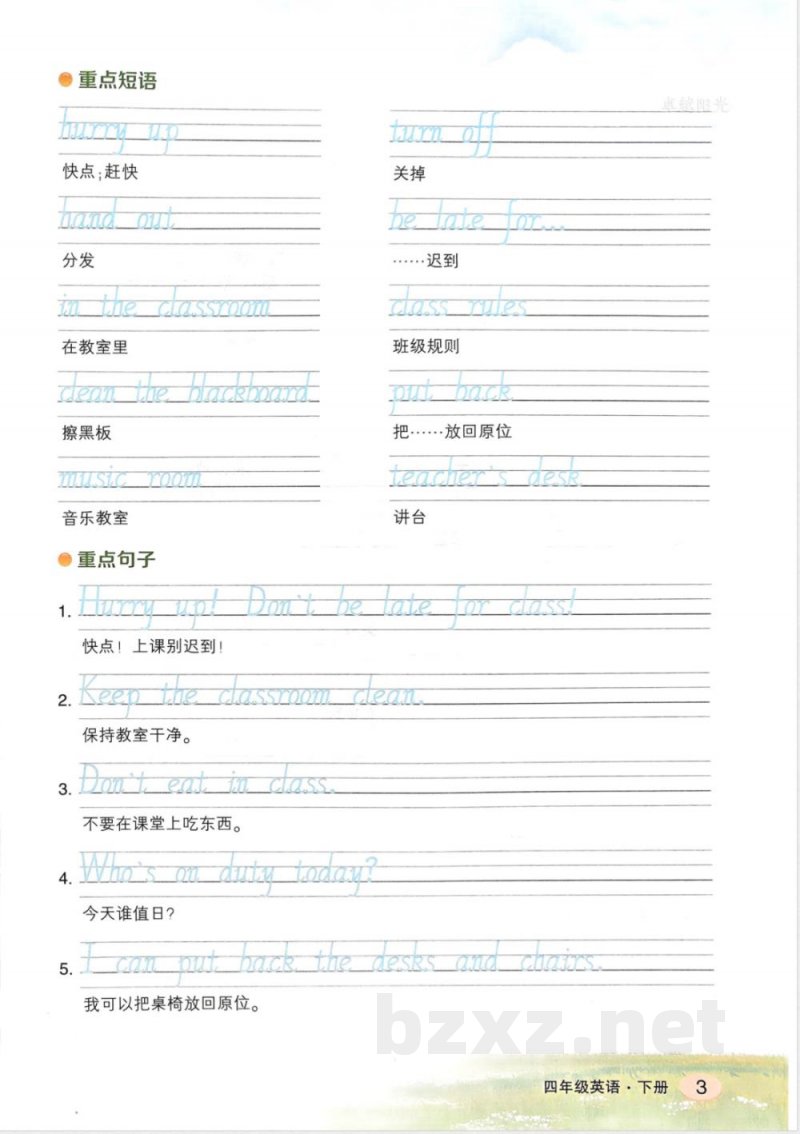 重点短语
hurry up
快点;赶快
turn off
关掉
hand out
分发
be late for...
……迟到
in the classroom
在教室里
class rules
班级规则
clean the blackboard
擦黑板
put back
把……放回原位
music room
音乐教室
teacher's desk
讲台
重点句子
1. Hurry up! Don't be late for class!
快点！上课别迟到！
2. Keep the classroom clean.
保持教室干净。
3. Don't eat in class.
不要在课堂上吃东西。
4. Who's on duty today?
今天谁值日?
5. I can put back the desks and chairs.
我可以把桌椅放回原位。
bzxz.net
四年级英语·下册 3